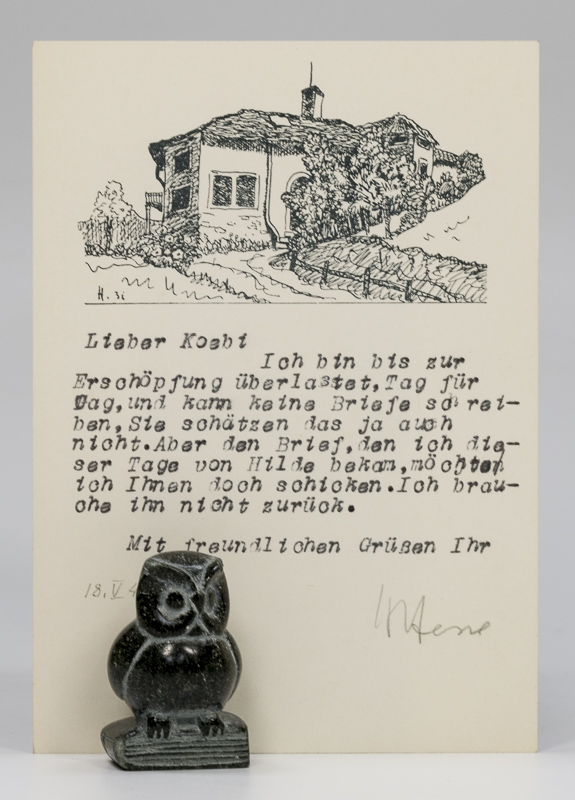 H. 31
Lieber Koebi
Ich bin bis zur
Erschöpfung überlastet,Tag für
Tag,und kann keine Briefe schrei-
ben,Sie schätzen das ja auch
nicht.Aber den Brief,den ich die-
ser Tage von Hilde bekam,möchten
ich Ihnen doch schicken.Ich brau-
che ihn nicht zurück.
Mit freundlichen Grüßen Ihr
18.V 4
HHesse